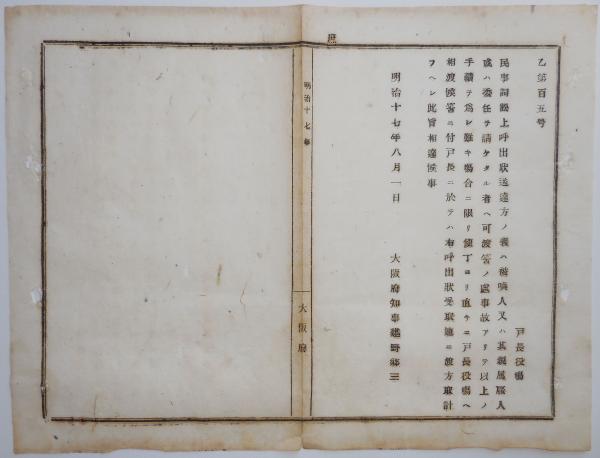 庶
乙第百五号
戸長役場
民事詞訟上呼出状送達方ノ義ハ被喚人又ハ其親属雇人
或ハ委任ヲ請ケタル者ヘ可渡筈ノ處事故アリテ以上ノ
手續ヲ為シ難キ場合ニ限リ使丁ヨリ直チニ戸長役場ヘ
相渡候筈ニ付戸長ニ於テハ右呼出状受取速ニ渡方取計
フヘシ此旨相達候事
明治十七年八月一日
大阪府知事建野郷三
明治十七年
大阪府